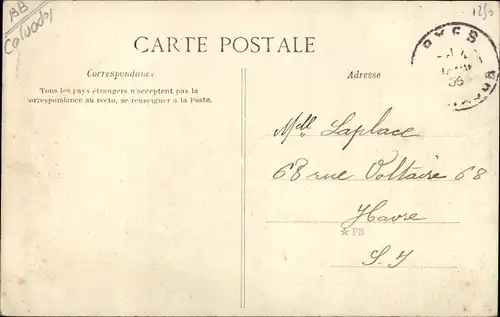 BB
Calvados
1250
CARTE POSTALE
Correspondance
Tous les pays étrangers n'acceptent pas la
correspondance au recto, se renseigner à la Poste.
Adresse
06
Mlle Laplace
68 rue Voltaire 68
Havre
FB
S. I